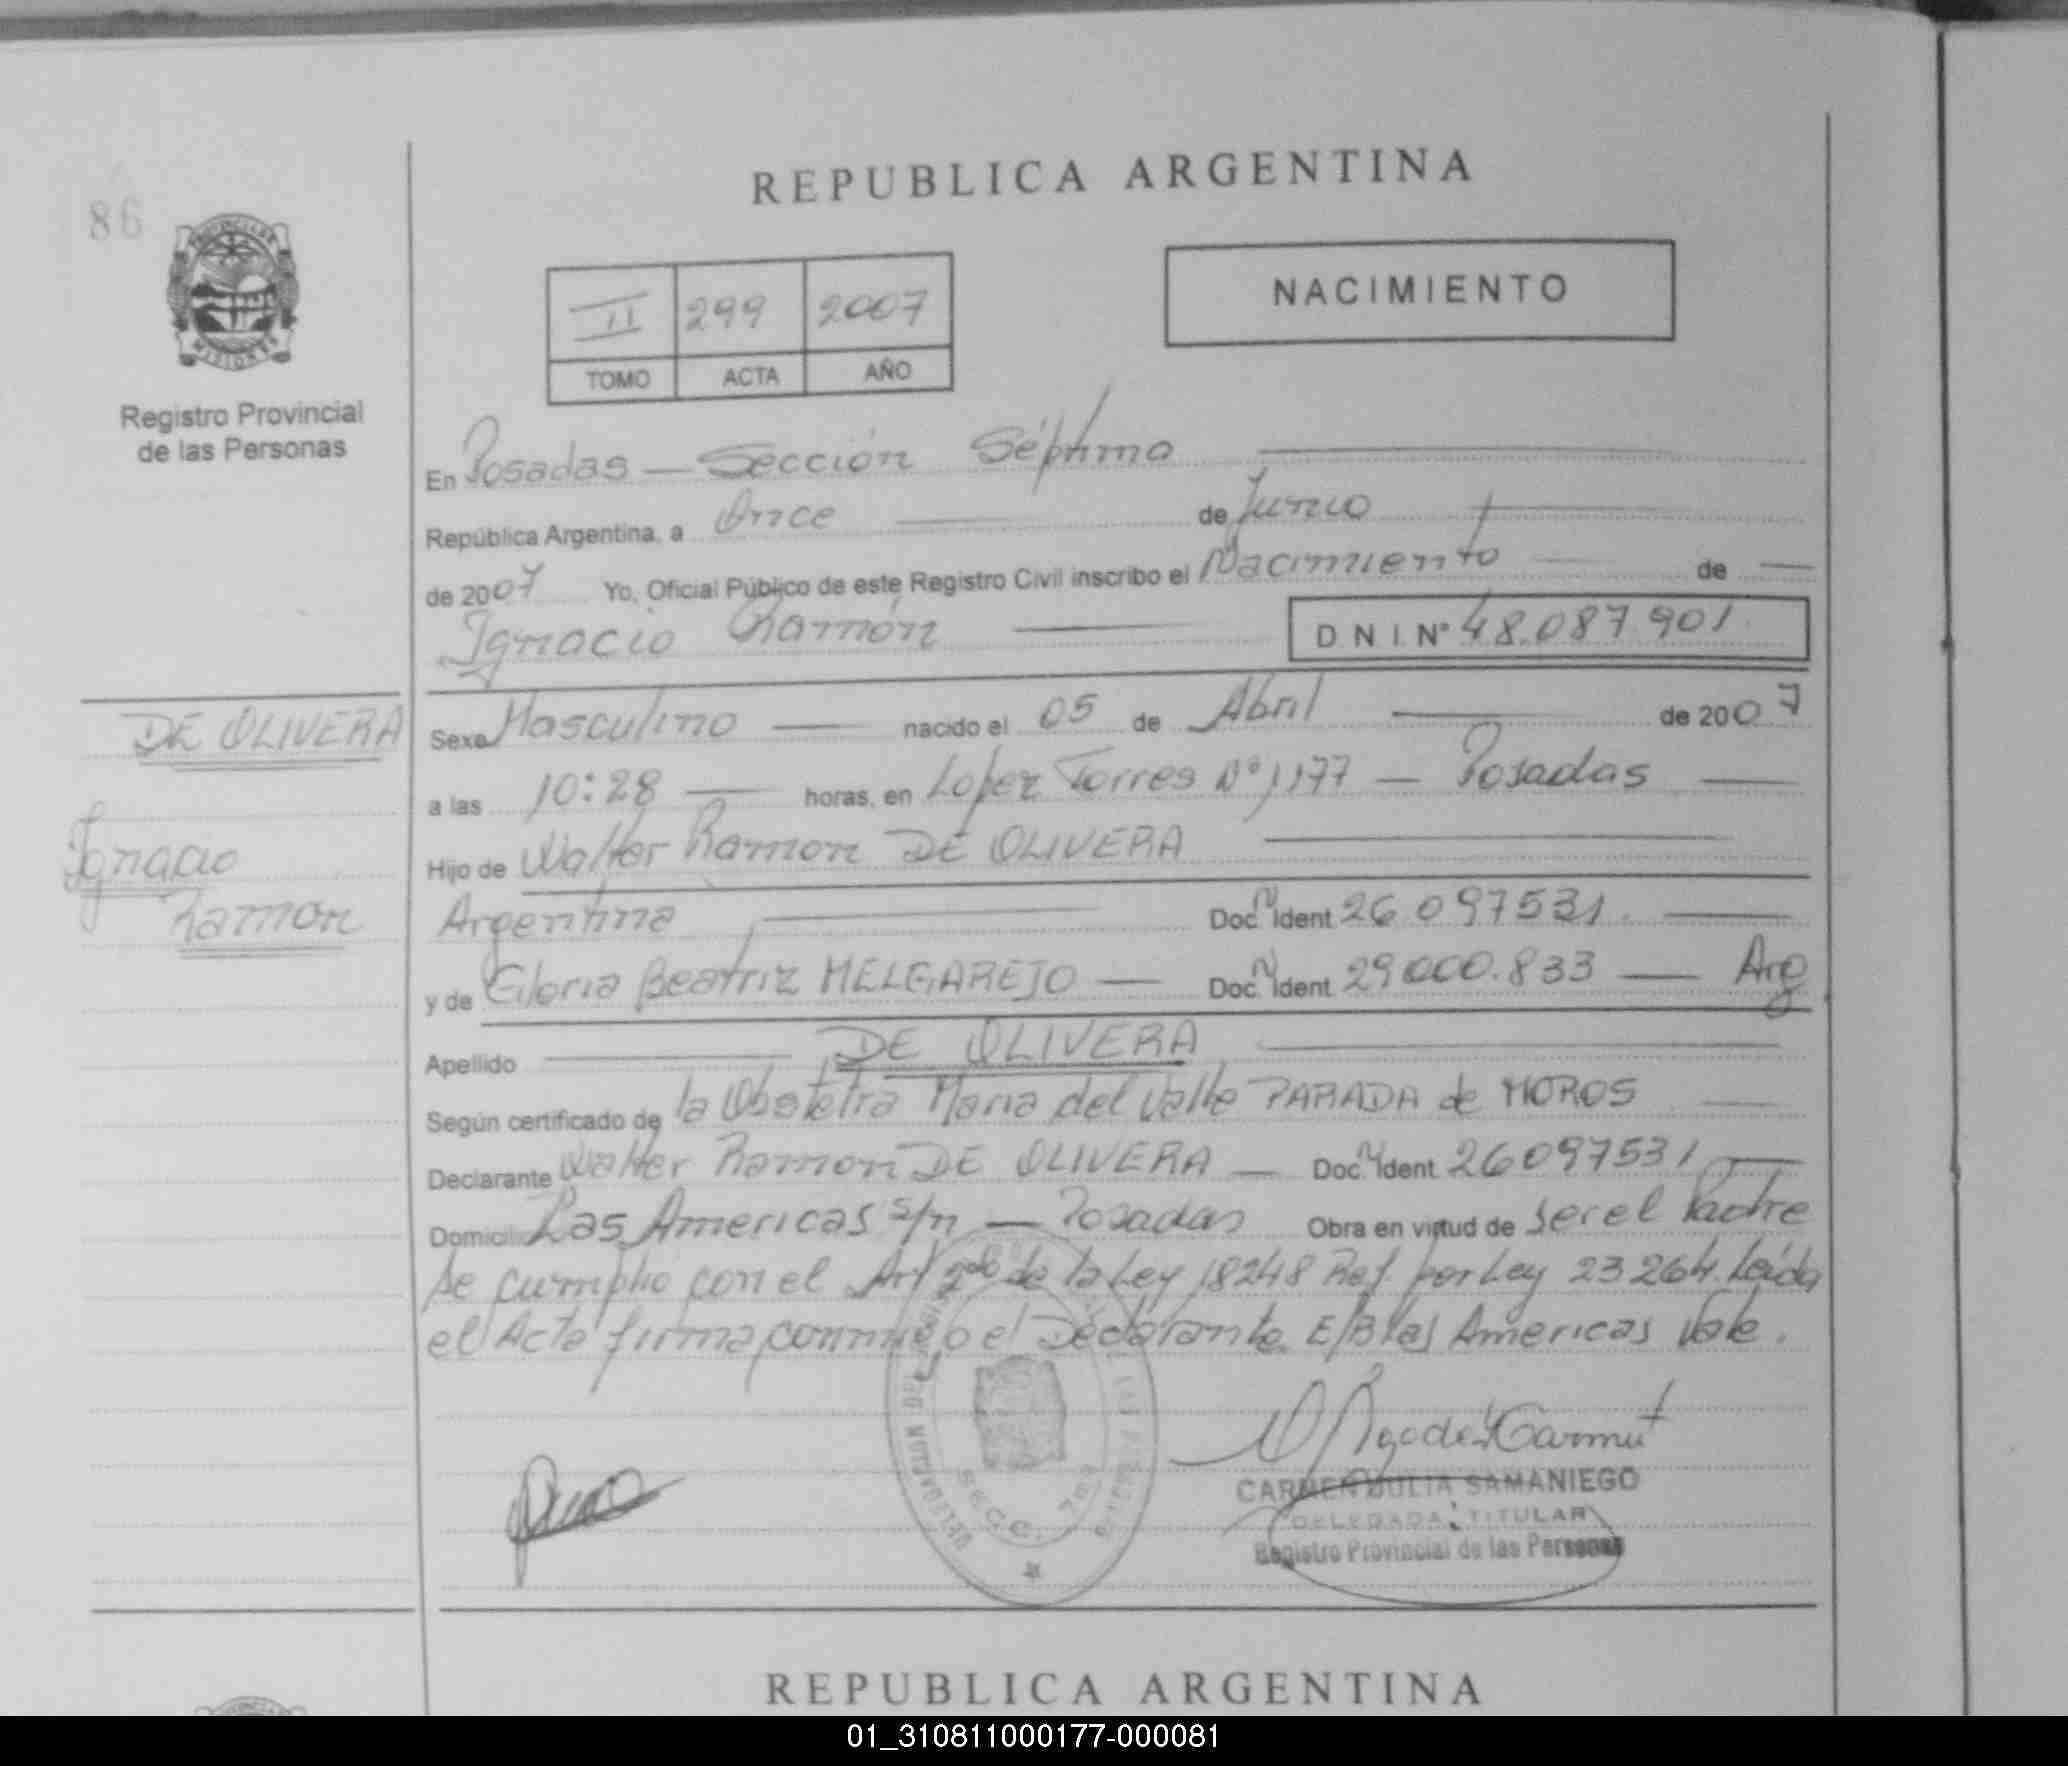 REPUBLICA ARGENTINA
86
PROVINCIA DE
MISIONES
Registro Provincial
de las Personas
II 299 2007
TOMO ACTA AÑO
NACIMIENTO
En Posadas — Sección Séptima
República Argentina, a Once de Junio
de 2007 Yo, Oficial Público de este Registro Civil inscribo el Nacimiento de
Ignacio Ramón
D N I. Nº 48.087.901
DE OLIVERA
Ignacio
Ramon
Sexo Masculino nacido el 05 de Abril de 2007
a las 10:28 horas, en Lopez Torres Nº 1177 — Posadas
Hijo de Walter Ramon DE OLIVERA
Argentina Doc. Ident 26 097531.
y de Gloria Beatriz MELGAREJO — Doc. Ident 29000.833 — Arg
Apellido DE OLIVERA
Según certificado de la Obstetra Maria del Valle PARADA de MOROS
Declarante Walter Ramon DE OLIVERA — Doc. Ident 26097531
Domicilio Las Americas s/n — Posadas Obra en virtud de ser el Padre
Se cumplio con el Art 2do de la Ley 18248 Ref. por Ley 23264. Leida
el Acta firma conmigo el Declarante. E/B las Americas Vale.
SECC. 7ma
CARMEN JULIA SAMANIEGO
DELEGADA TITULAR
Registro Provincial de las Personas
REPUBLICA ARGENTINA
01_310811000177-000081